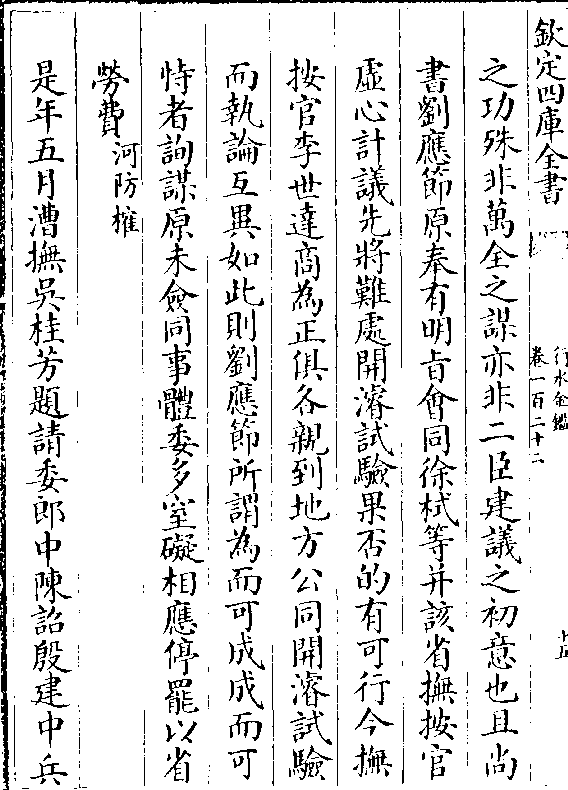 欽定四庫全書
行水金鑑
卷一百二十二
之功殊非萬全之謀亦非二臣建議之初意也且尚
書劉應節原奉有明㫖會同徐栻等并該省撫按官
虛心計議先將難處開濬試驗果否的有可行今撫
按官李世達商為正俱各親到地方公同開濬試驗
而執論互異如此則劉應節所謂為而可成成而可
恃者詢謀原未僉同事體委多窒礙相應停罷以省
勞費河防榷
是年五月漕撫吳桂芳題請委郎中陳詔殷建中兵